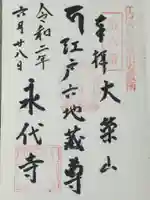 奉拝 大栄山
江戸六地蔵尊
永代寺
令和二年
六月廿八日